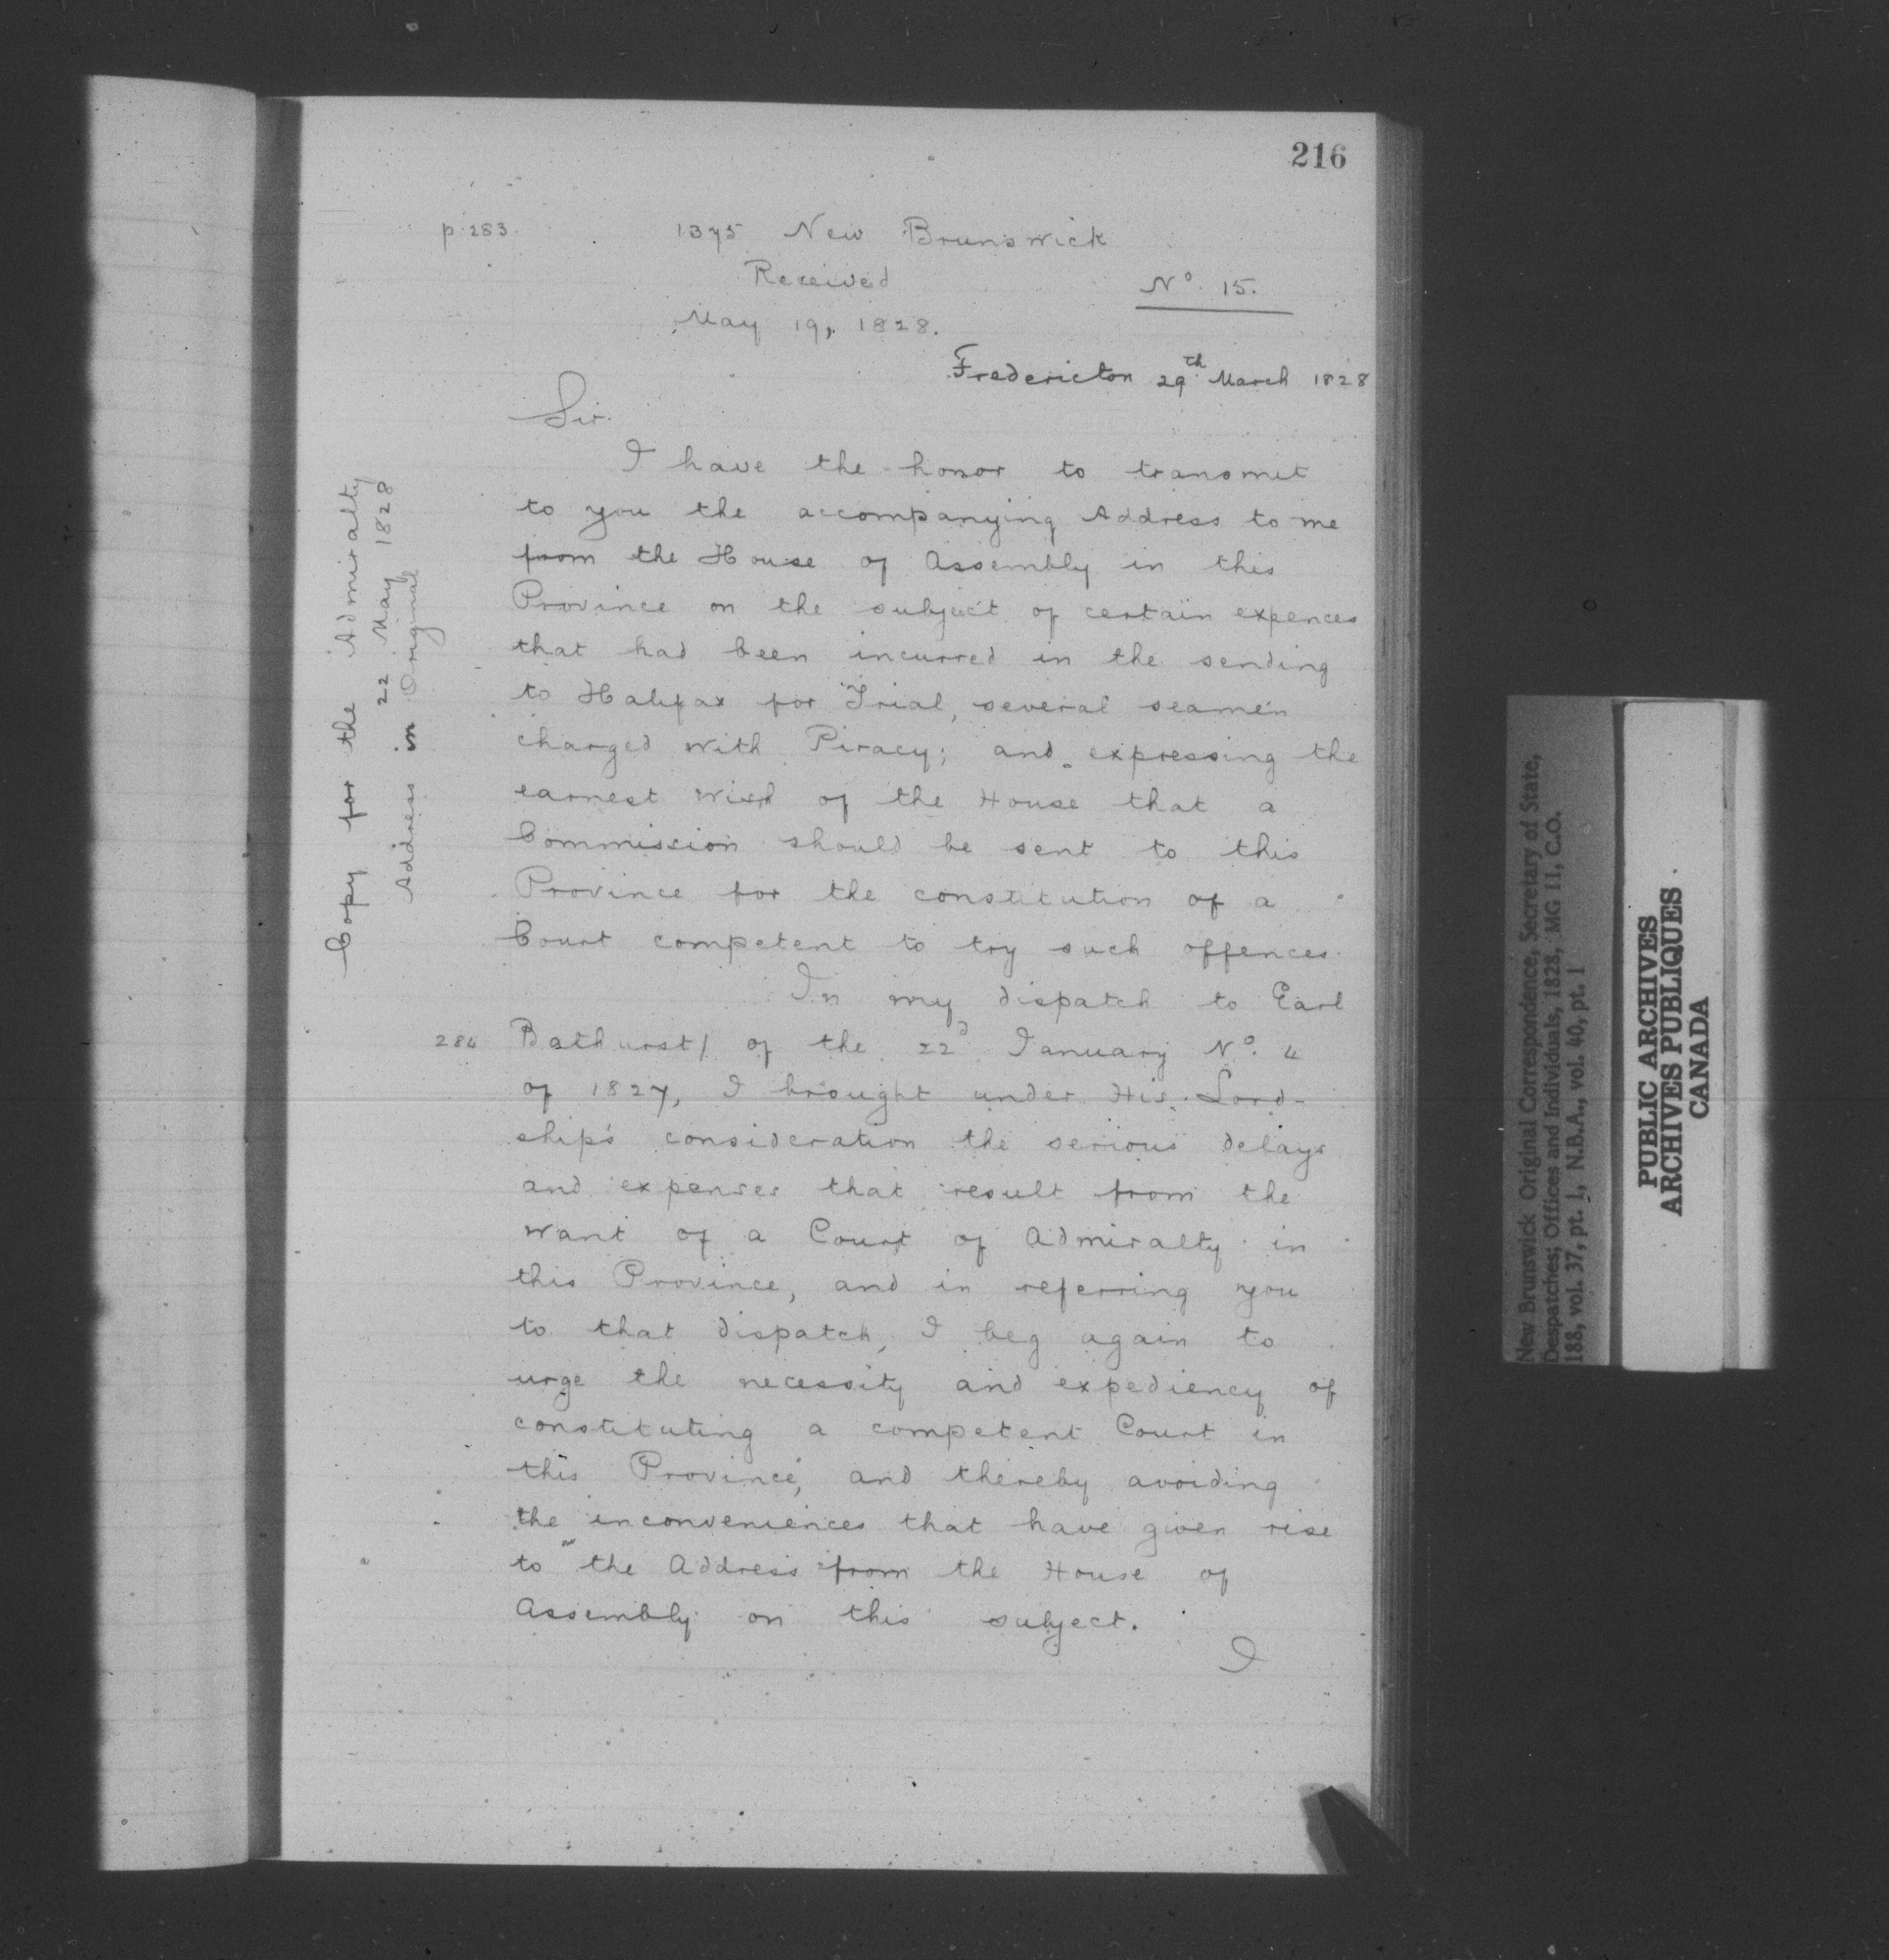 216
p. 283.
1375 New Brunswick
Received
Nº 15.
May 19, 1828.
Fredericton 29th March 1828
Sir.
I have the honor to transmit
to you the accompanying Address to me
from the House of Assembly in this
Province on the subject of certain expences
that had been incurred in the sending
to Halifax for Trial, several seamen
charged with Piracy; and expressing the
earnest wish of the House that a
Commission should be sent to this
Province for the constitution of a
Court competent to try such offences.
In my dispatch to Earl
284 Bathurst/ of the 22d January Nº. 4
of 1827, I brought under His Lord-
ship's consideration the serious delays
and expenses that result from the
want of a Court of Admiralty in
this Province, and in referring you
to that dispatch, I beg again to
urge the necessity and expediency of
constituting a competent Court in
this Province, and thereby avoiding
the inconveniences that have given rise
to the Address from the House of
Assembly on this subject.
I
Copy for the Admiralty
22 May 1828
Address in Original
New Brunswick Original Correspondence, Secretary of State,
Despatches; Offices and Individuals, 1828, MG 11, C.O.
188, vol. 37, pt. 1, N.B.A., vol. 40, pt. 1
PUBLIC ARCHIVES
ARCHIVES PUBLIQUES
CANADA